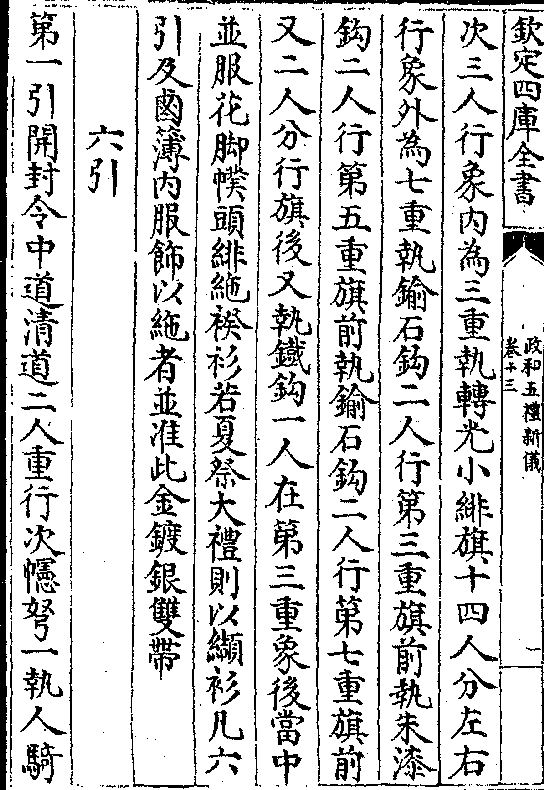 欽定四庫全書
政和五禮新儀
卷十三
一
次三人行象内為三重執轉光小緋旗十四人分左右
行象外為七重執鍮石鈎二人行第三重旗前執朱漆
鈎二人行第五重旗前執鍮石鈎二人行第七重旗前
又二人分行旗後又執鐵鈎一人在第三重象後當中
並服花脚幞頭緋絁䙆衫若夏祭大禮則以纈衫凡六
引及鹵簿内服飾以絁者並准此金鍍銀雙帶
六引
第一引開封令中道清道二人重行次幰弩一執人騎